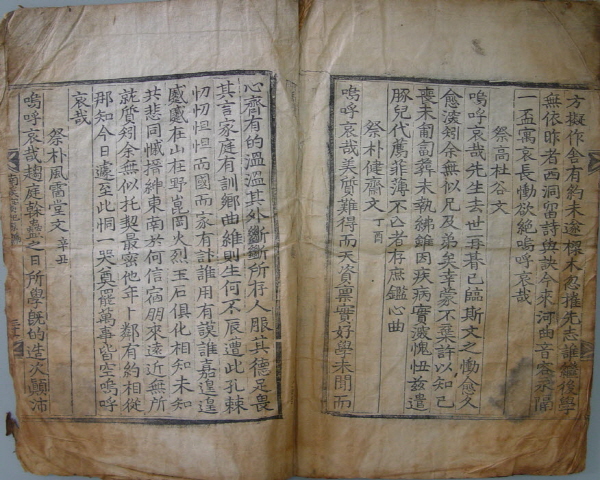 方擬作舍有約未遂樑木忽摧先志誰繼後學
無依昨者西洞留詩與訣今來河曲音容永隔
一盃寓哀長慟欲絶嗚呼哀哉
祭高杜谷文
嗚呼哀哉先生去世再朞已臨斯文之慟愈久
愈深矧余無似兄及弟矣幸蒙不棄許以知己
喪未匍匐葬未執紼雖因疾病實深愧忸玆遣
豚兒代薦菲薄不亡者存庶鑑心曲
祭朴健齋文 丁酉
嗚呼哀哉美質難得而天資稟實好學未聞而
心齋有的溫溫其外斷斷所存人服其德足畏
其言家庭有訓鄕曲維則生何不辰遭此孔棘
忉忉怛怛而國而家有誰用有謨誰嘉遑遑
慼慼在山在野崑岡火烈玉石俱化相知未知
共悲同慽搢紳東南於何信宿朋來遠近無所
就質矧余無似托契最密他年卜鄰有約相從
那知今日遽至此恫一哭奠罷萬事皆空嗚呼
哀哉
祭朴風霽堂文 辛丑
嗚呼哀哉趨庭榦蠱之日所學旣的造次顚沛